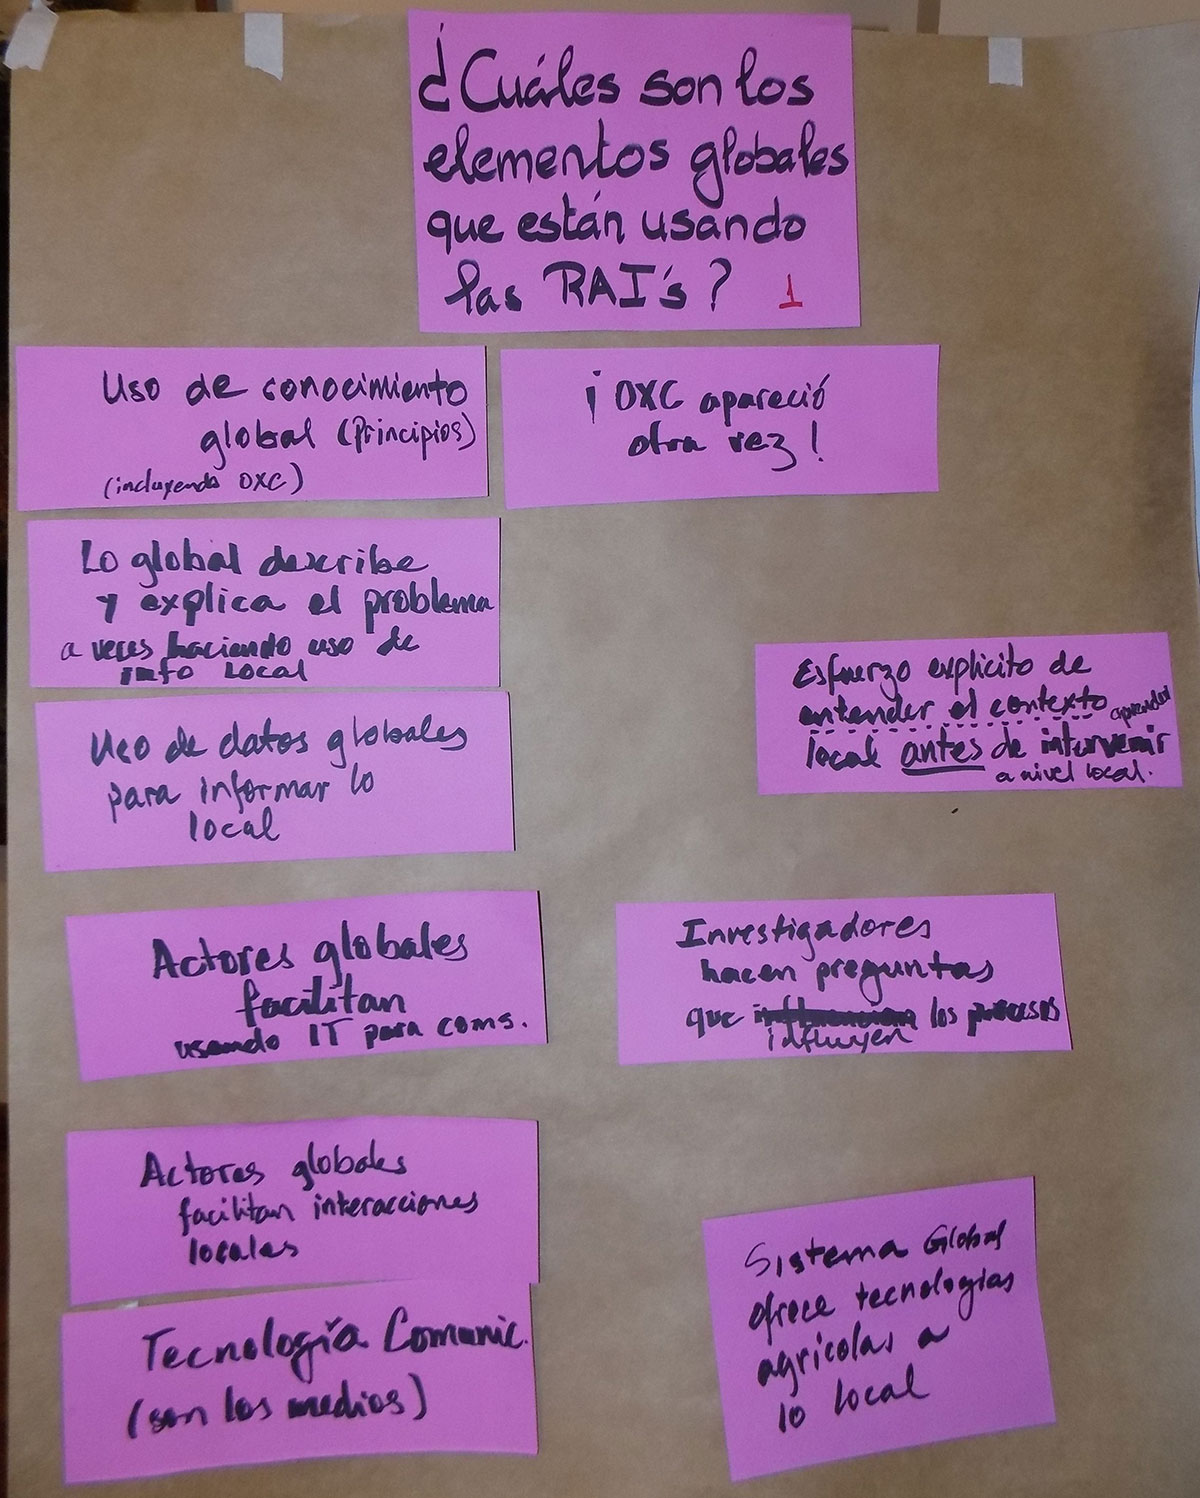 ¿Cuáles son los
elementos globales
que están usando
las RAI's? 1
Uso de conocimiento
global (Principios)
(incluyendo OXC)
¡OXC apareció
otra vez!
Lo global describe
y explica el problema
a veces haciendo uso de
info local
Uso de datos globales
para informar lo
local
Esfuerzo explícito de
entender el contexto aprender
local antes de intervenir
a nivel local.
Actores globales
facilitan
usando IT para coms.
Investigadores
hacen preguntas
que influencian los procesos
influyen
Actores globales
facilitan interacciones
locales
Tecnología Comunic.
(son los medios)
Sistema Global
ofrece tecnologías
agrícolas a
lo local